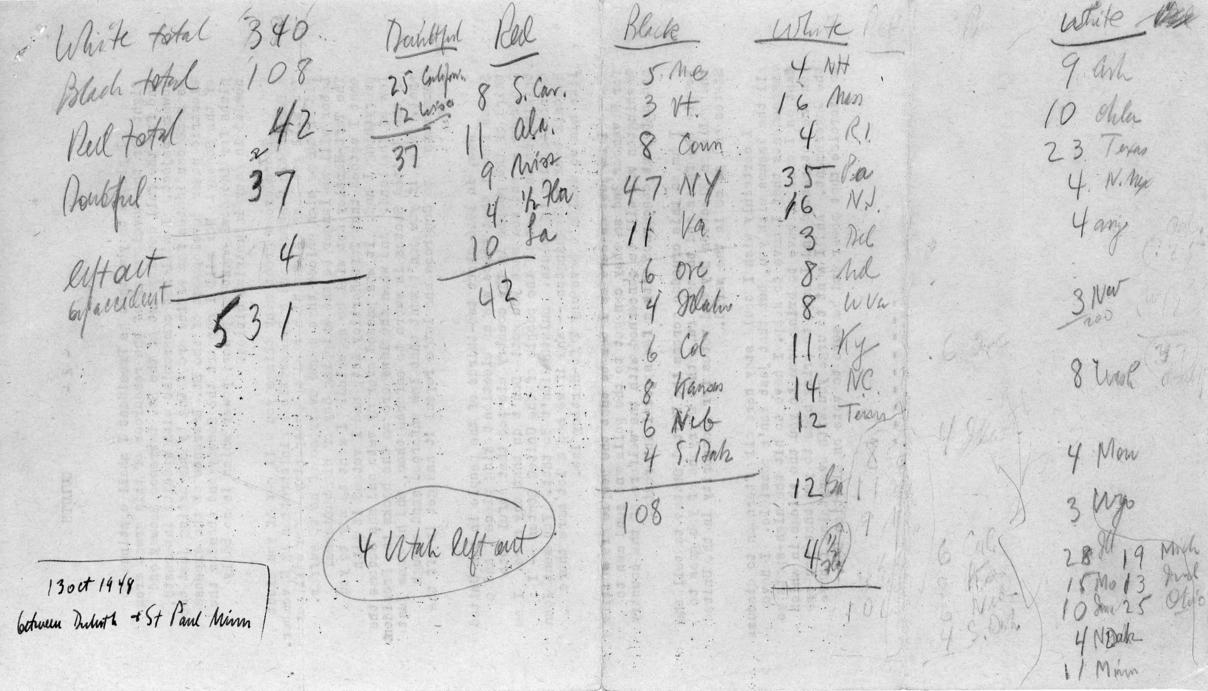 White total 340
Black total 108
Red total 42
Doubtful 37
left out 4
by accident
531
Doubtful
25 California
12
37
Red
8 S. Car.
11 Ala.
9 Miss
4 1/2 Fla
10 La
42
Black
5 Me
3 Vt.
8 Conn
47 NY
11 Va
6 Ore
4 Idaho
6 Col
8 Kansas
6 Neb
4 S. Dak
108
White
4 NH
16 Mass
4 R.I.
35 Pa
16 N.J.
3 Del
8 Md
8 W Va
11 Ky
14 NC
12 Tenn
12 Ga
4 1/2 Fla
White
9 Ark
10 Okla
23 Texas
4 N. Mex
4 Ariz
3 Nev
8 Wash
4 Mon
3 Wyo
28 Ill 19 Mich
15 Mo 13 Ind
10 Iowa 25 Ohio
4 N Dak
11 Minn
4 Utah left out
13 Oct 1948
between Duluth + St Paul Minn